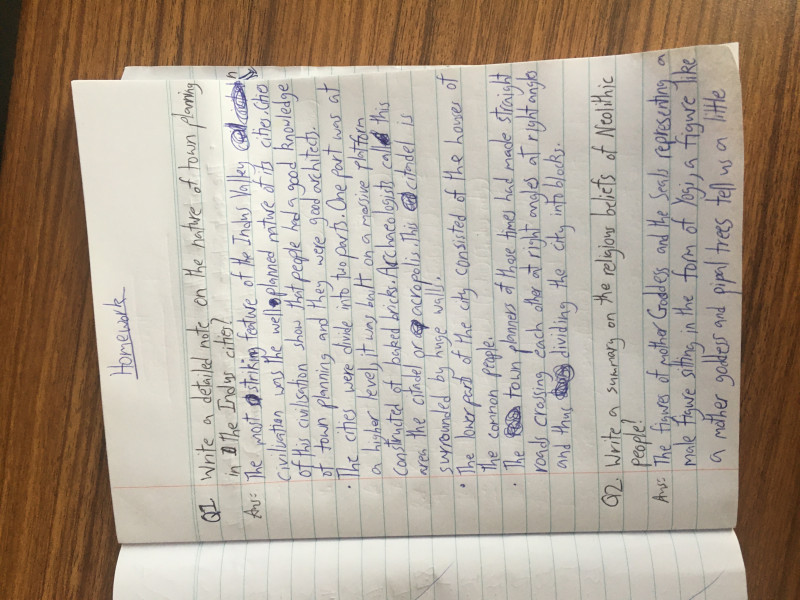 Homework
Q1 Write a detailed note on the nature of town planning
in the Indus cities?
Ans: The most striking feature of the Indus Valley
Civilisation was the well planned nature of its cities. Cities
of this civilisation show that people had a good knowledge
of town planning and they were good architects.
• The cities were divide into two parts. One part was at
a higher level, it was built on a massive platform
constructed of baked bricks. Archaeologists called this
area the citadel or acropolis. This citadel is
surrounded by huge walls.
• The lower part of the city consisted of the houses of
the common people.
• The town planners of those times had made straight
roads crossing each other at right angles at right angles
and thus dividing the city into blocks.
Q2 Write a summary on the religious beliefs of Neolithic
people?
Ans: The figures of mother Goddess and the Seals representing a
male figure sitting in the form of Yogi, a figure like
a mother goddess and pipal trees tell us a little